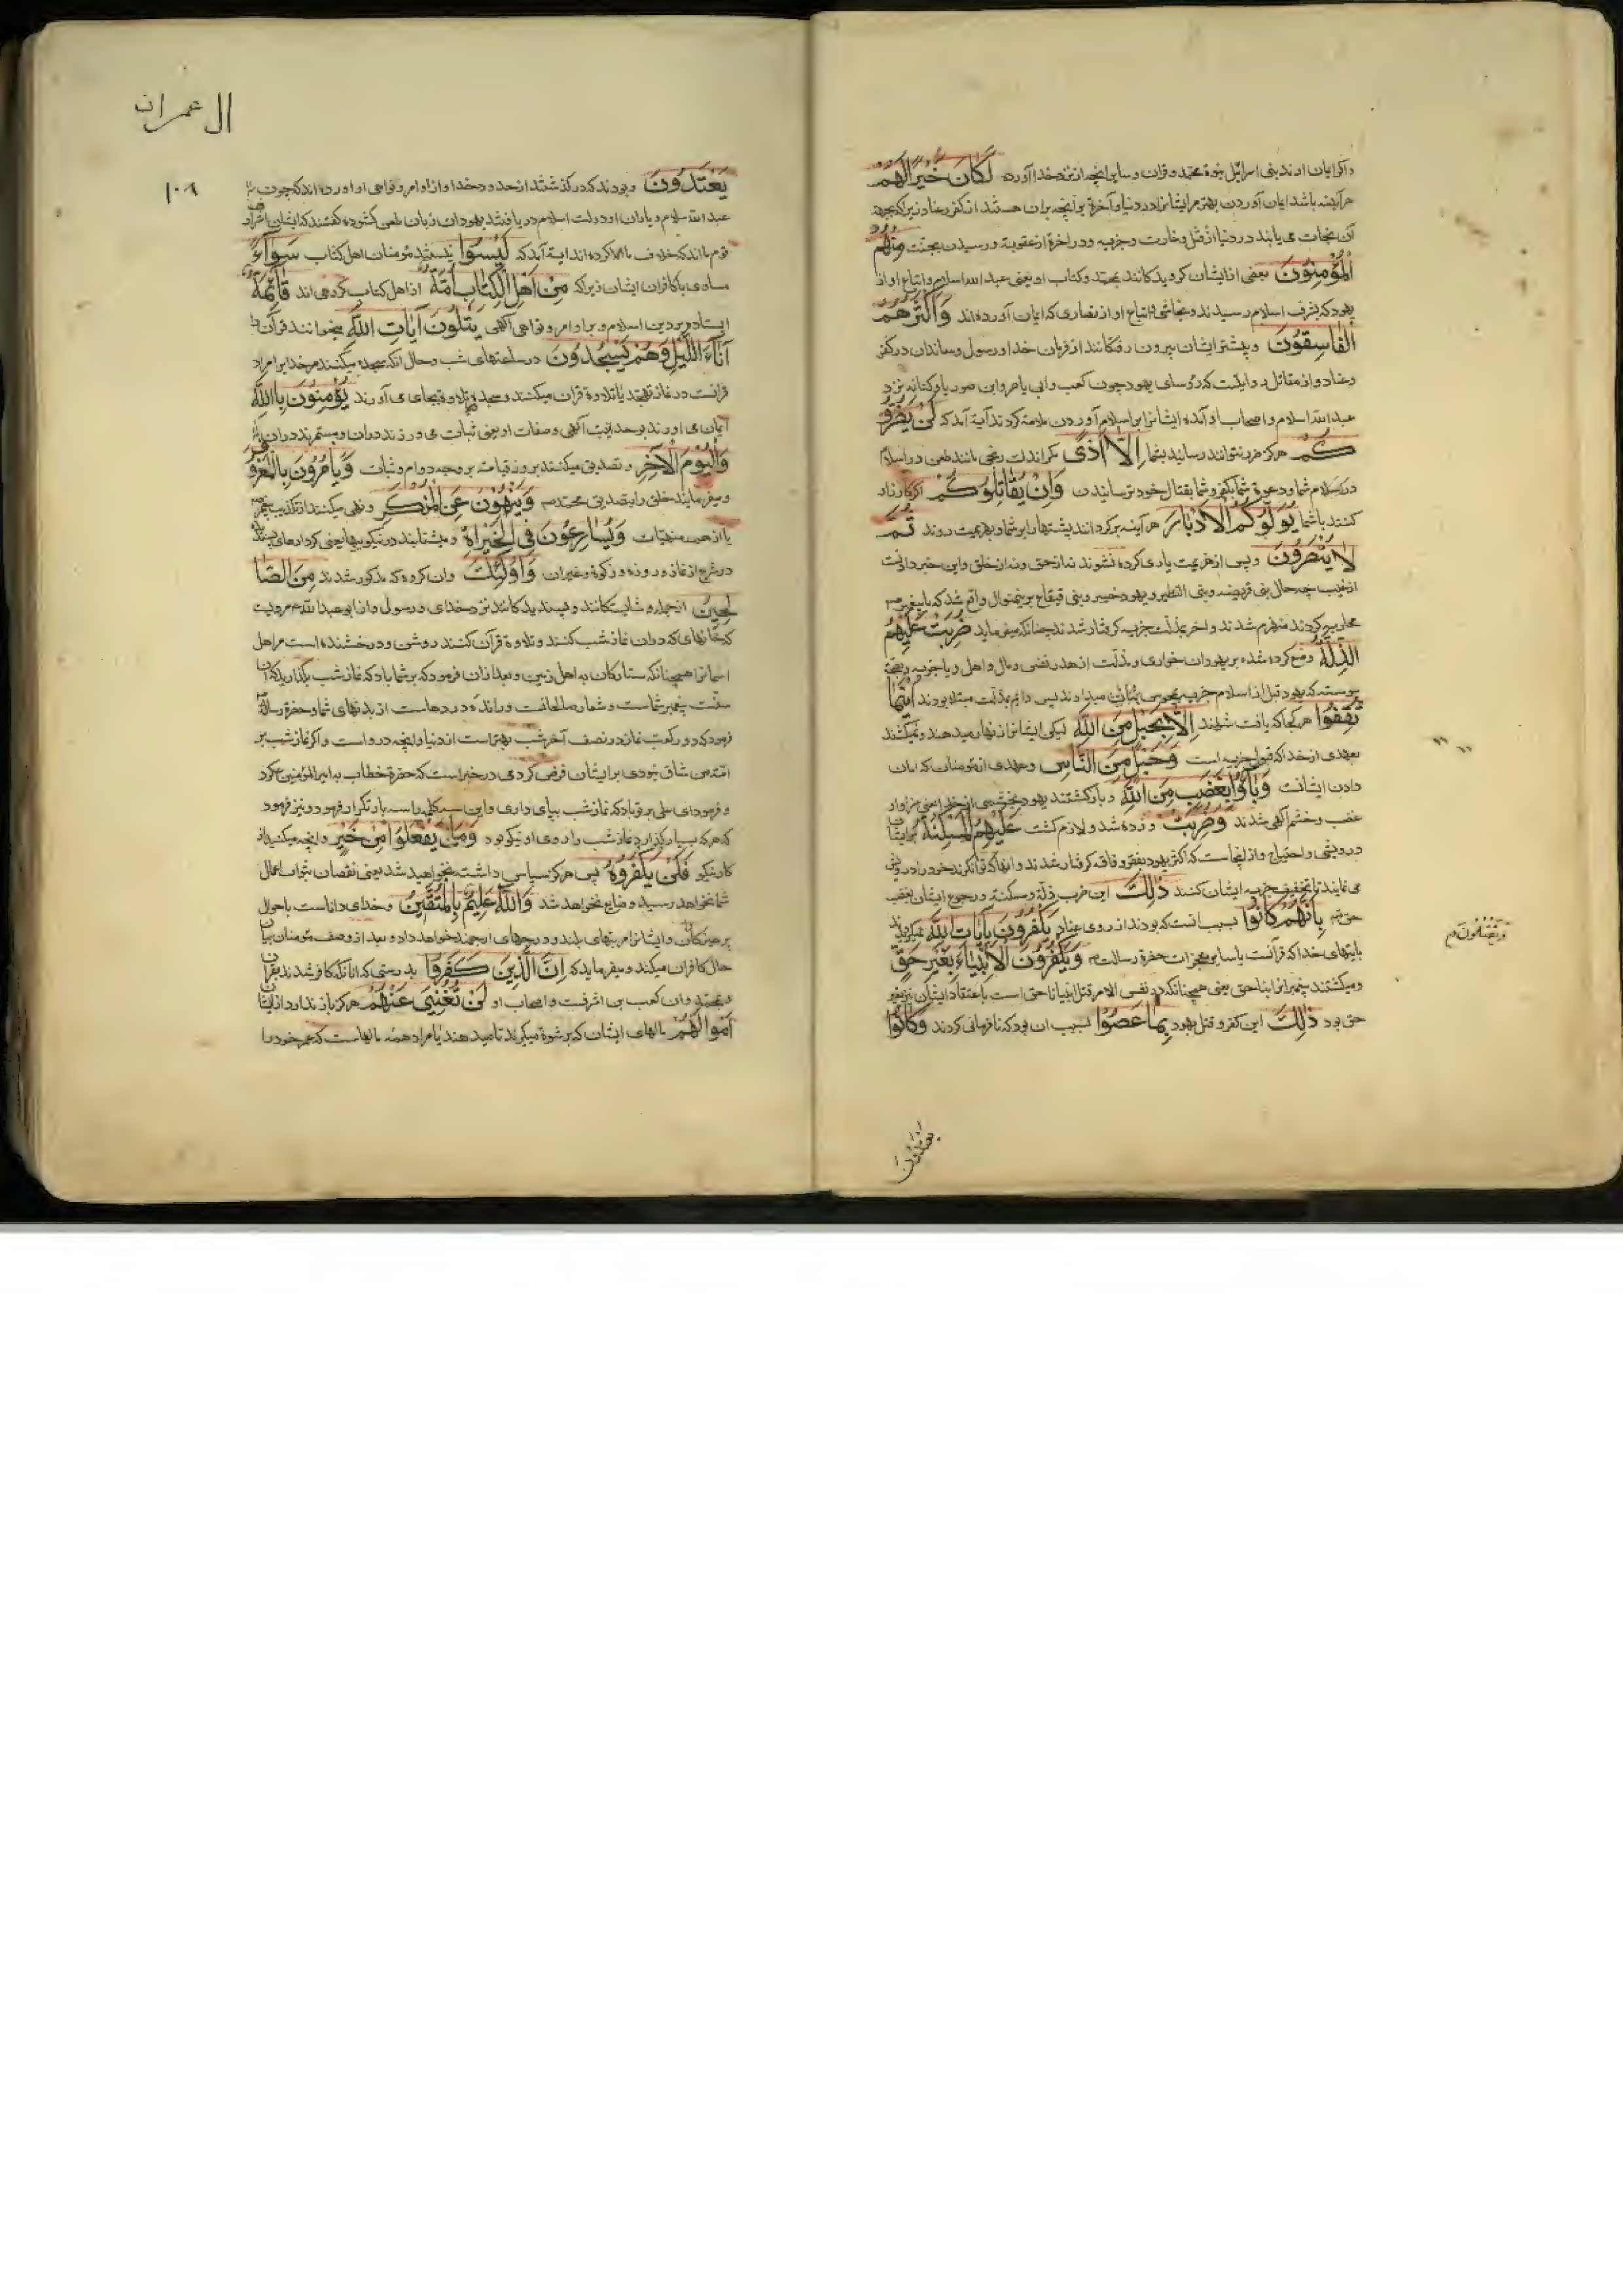 و اگر ایمان اورند بنی اسرائیل بنبوة محمد و قران و سایر انچه از نزد خدا آورده لَكَانَ خَيْرًا لَهُمْ
هر آینه باشد ایمان آوردن بهتر مر ایشانرا در دنیا و آخرة بر آنچه بران هستند از کفر و عناد زیرا که بجهة
آن نجات می یابند در دنیا از قتل و غارت و جزیه و در اخرة از عقوبة و رسیدن بجنت مِنْهُمُ
الْمُؤْمِنُونَ بعضی از ایشان گرویدکانند بمحمد و کتاب او یعنی عبد الله سلام و اتباع او از
یهود که بشرف اسلام رسیدند و نجاشی و اتباع او از نصاری که ایمان آورده اند وَأَكْثَرُهُمُ
الْفَاسِقُونَ و بیشتر ایشان بیرون رفتکانند از فرمان خدا و رسول و ماندان در کفر
و عناد و از مقاتل روایتست که رؤسای یهود چون کعب و ابی یاهر و ابن صوریا و کنانه نزد
عبد الله سلام و اصحاب او آمده ایشانرا بر اسلام آوردن ملامة کردند آیة آمد که لَنْ يَضُرُّو
كُمْ هرکز ضرر نتوانند رسانید بشما إِلَّا أَذًى مکر اندک رنجی مانند طعن در اسلام
در اسلام شما و دعوة شما بکفر و شما بقتال خود ترسانیدن وَإِنْ يُقَاتِلُوكُمْ اکر کارزار
کنند با شما يُوَلُّوكُمُ الْأَدْبَارَ هر آینه برکردانند پشتها را بر شما و بهزیمت روند ثُمَّ
لَا يُنْصَرُونَ و پس از هزیمت یاری کرده نشوند نه از حق و نه از خلق و این خبر دادنست
از غیب چه حال بنی قریضه و بنی النظیر و یهود خیبر و بنی قینقاع برینمنوال واقع شد که با پیغمبر
محاربه کردند منهزم شدند و اخر بمذلت جزیه کرفتار شدند چنانکه میفرماید ضُرِبَتْ عَلَيْهِمُ
الذِّلَّةُ وضع کرده شده بر یهودان خواری و مذلت از هدر نفس و مال و اهل و یا جزیه
پیوسته که یهود قبل از اسلام جزیه بمجوس میدادند پس دایم بمذلت مبتلا بودند أَيْنَمَا
ثُقِفُوا هر کجا که یافت شوند إِلَّا بِحَبْلٍ مِنَ اللَّهِ لیکن ایشانرا زنهار میدهند و نمیکشند
بعهدی از خدا که قبول جزیه است وَحَبْلٍ مِنَ النَّاسِ و عهدی از مؤمنان که امان
دادن ایشانست وَبَاءُوا بِغَضَبٍ مِنَ اللَّهِ و بازکشتند یهود بخشمی از خدا یعنی سزاوار
غضب و خشم الهی شدند وَضُرِبَتْ و زده شد و لازم کشت عَلَيْهِمُ الْمَسْكَنَةُ بر ایشان
درویشی و احتیاج و از اینجاست که اکثر یهود بفقر و فاقه کرفتار شدند و اینها که توانگرند خود را درویش
می نمایند تا تخفیف جزیه ایشان کنند ذَٰلِكَ این ضرب ذلة و مسکنة و رجوع ایشان بغضب
حق بِأَنَّهُمْ كَانُوا بسبب انست که بودند از روی عناد يَكْفُرُونَ بِآيَاتِ اللَّهِ
بایتهای خدا که قرآنست یا سایر معجزات حضرة رسالت وَيَكْفُرُونَ الْأَنْبِيَاءَ بِغَيْرِ حَقٍّ
و میکشتند پیغمبرانرا بناحق یعنی همچنانکه در نفس الامر قتل انبیا ناحق است باعتقاد ایشان نیز بغیر
حق بود ذَٰلِكَ این کفر و قتل یهود بِمَا عَصَوْا بسبب ان بود که نافرمانی کردند وَكَانُوا
وَيَقْتُلُونَ
يَعْتَدُونَ
ال عمران
۱۰۸
يَعْتَدُونَ و بودند که درکذشتند از حدود خدا و از اوامر و نواهی او آورده اند که چون
عبد الله سلام و یاران او دولت اسلام دریافتند یهودان زبان طعن کشوده گفتند که ایشان اشرار
قوم ما اند که خلاف ما کرده اند ایة آمد که لَيْسُوا نیستند مؤمنان اهل کتاب سَوَاءً
مساوی با کافران ایشان زیرا که مِنْ أَهْلِ الْكِتَابِ أُمَّةٌ از اهل کتاب کروهی اند قَائِمَةٌ
ایستاده بر دین اسلام و بر اوامر و نواهی الهی يَتْلُونَ آيَاتِ اللَّهِ میخوانند قرآن را
آنَاءَ اللَّيْلِ وَهُمْ يَسْجُدُونَ در ساعتهای شب و حال انکه سجده میکنند مر خدا یرا مراد
قرائت در نماز تهجد یا تلاوة قران میکنند و سجده تلاوة بجای می آورند يُؤْمِنُونَ بِاللَّهِ
ایمان می اورند بوحدانیت الهی و صفات او یعنی ثبات می ورزند دران و مستمرند دران
وَالْيَوْمِ الْآخِرِ و تصدیق میکنند بروز قیامة بر وجه دوام و ثبات وَيَأْمُرُونَ بِالْمَعْرُوفِ
و میفرمایند خلق را بتصدیق محمد وَيَنْهَوْنَ عَنِ الْمُنْكَرِ و نهی میکنند از تکذیب پیغمبر
یا از جمیع منهیات وَيُسَارِعُونَ فِي الْخَيْرَاةِ و میشتابند در نیکوییها یعنی کردارهای پسندیده
در شرع از نماز و روزه و زکوة و غیر ان وَأُولَٰئِكَ وان کروه که مذکور شدند مِنَ الصَّا
لِحِينَ از جمله شایستکانند و پسندیدکانند نزد خدای و رسول و از ابو عبد الله مرویست
که خانهای که دران نماز شب کنند و تلاوة قرآن کنند روشن و درخشنده است مر اهل
اسمانرا همچنانکه ستارکان به اهل زمین و بعد ازان فرمود که بر شما باد که نماز شب بگذارید که آن
سنت پیغمبر شماست و شعار صالحانست و راننده دردهاست از بدنهای شما و حضرة رسالة
فرمود که دو رکعت نماز در نصف آخر شب بهتر است از دنیا و انچه در واست و اکر نماز شب بر
امت من شاق نبودی بر ایشان فرض کردمی در خبر است که حضرة خطاب به امیر المؤمنین کرد
و فرمود ای علی بر تو باد که نماز شب بپای داری و این کلمه را سه بار تکرار فرمود و نیز فرمود
که هر که بسیار بگذارد نماز شب را روی او نیکو بود وَمَا يَفْعَلُوا مِنْ خَيْرٍ و انچه میکنید از
کار نیکو فَلَنْ يُكْفَرُوهُ پس هرکز سپاس داشته نخواهید شد یعنی نقصان بثواب اعمال
شما نخواهد رسید و ضایع نخواهد شد وَاللَّهُ عَلِيمٌ بِالْمُتَّقِينَ و خدای داناست باحوال
پرهیزکاران و ایشانرا مرتبهای بلند و درجهای ارجمند خواهد داد و بعد از وصف مؤمنان بیان
حال کافران میکند و میفرماید که إِنَّ الَّذِينَ كَفَرُوا بدرستی که انانکه کافر شدند بقران
و بمحمد وان کعب بن اشرفست و اصحاب او لَنْ تُغْنِيَ عَنْهُمْ هرکز باز ندارد از ایشان
أَمْوَالُهُمْ مالهای ایشان که برشوة میکیرند تا میدهند یا مراد همه مالهاست که عمر خود را